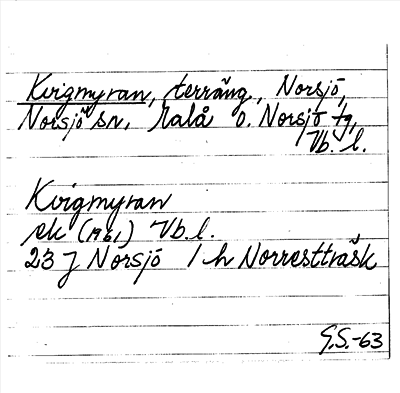 Kvigmyran, terräng, Norsjö,
Norsjö sn, Malå o. Norsjö tg,
Vb. l.
Kvigmyran
ek (1961) Vb. l.
23 J Norsjö 1 h Norresttrask
G.S.-63